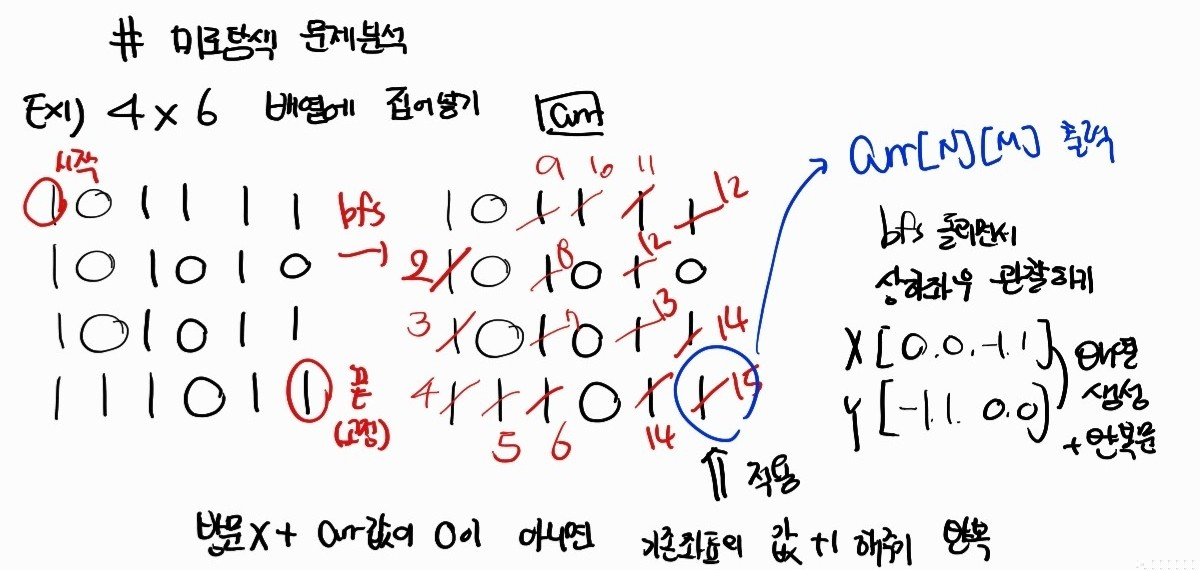 # 미로탐색 문제분석
Ex1) 4 x 6 배열에 집어넣기 arr
시작
1 0 1 1 1 1
1 0 1 0 1 0
1 0 1 0 1 1
1 1 1 0 1 1
끝
(고정)
bfs
→
9 10 11 12
1 0 1 1 1 1
2 1 0 1 8 0 1 12 0
3 1 0 1 7 0 1 13 1 14
4 1 1 1 0 1 1 15
5 6 14
arr[N][M] 출력
bfs 돌리면서
상하좌우 관찰하기
X [0.0.-1.1]
Y [-1.1. 0.0]
배열
생성
+ 반복문
⇑ 적용
방문X + arr값이 0이 아니면 기존좌표의 값 +1 해주기 반복